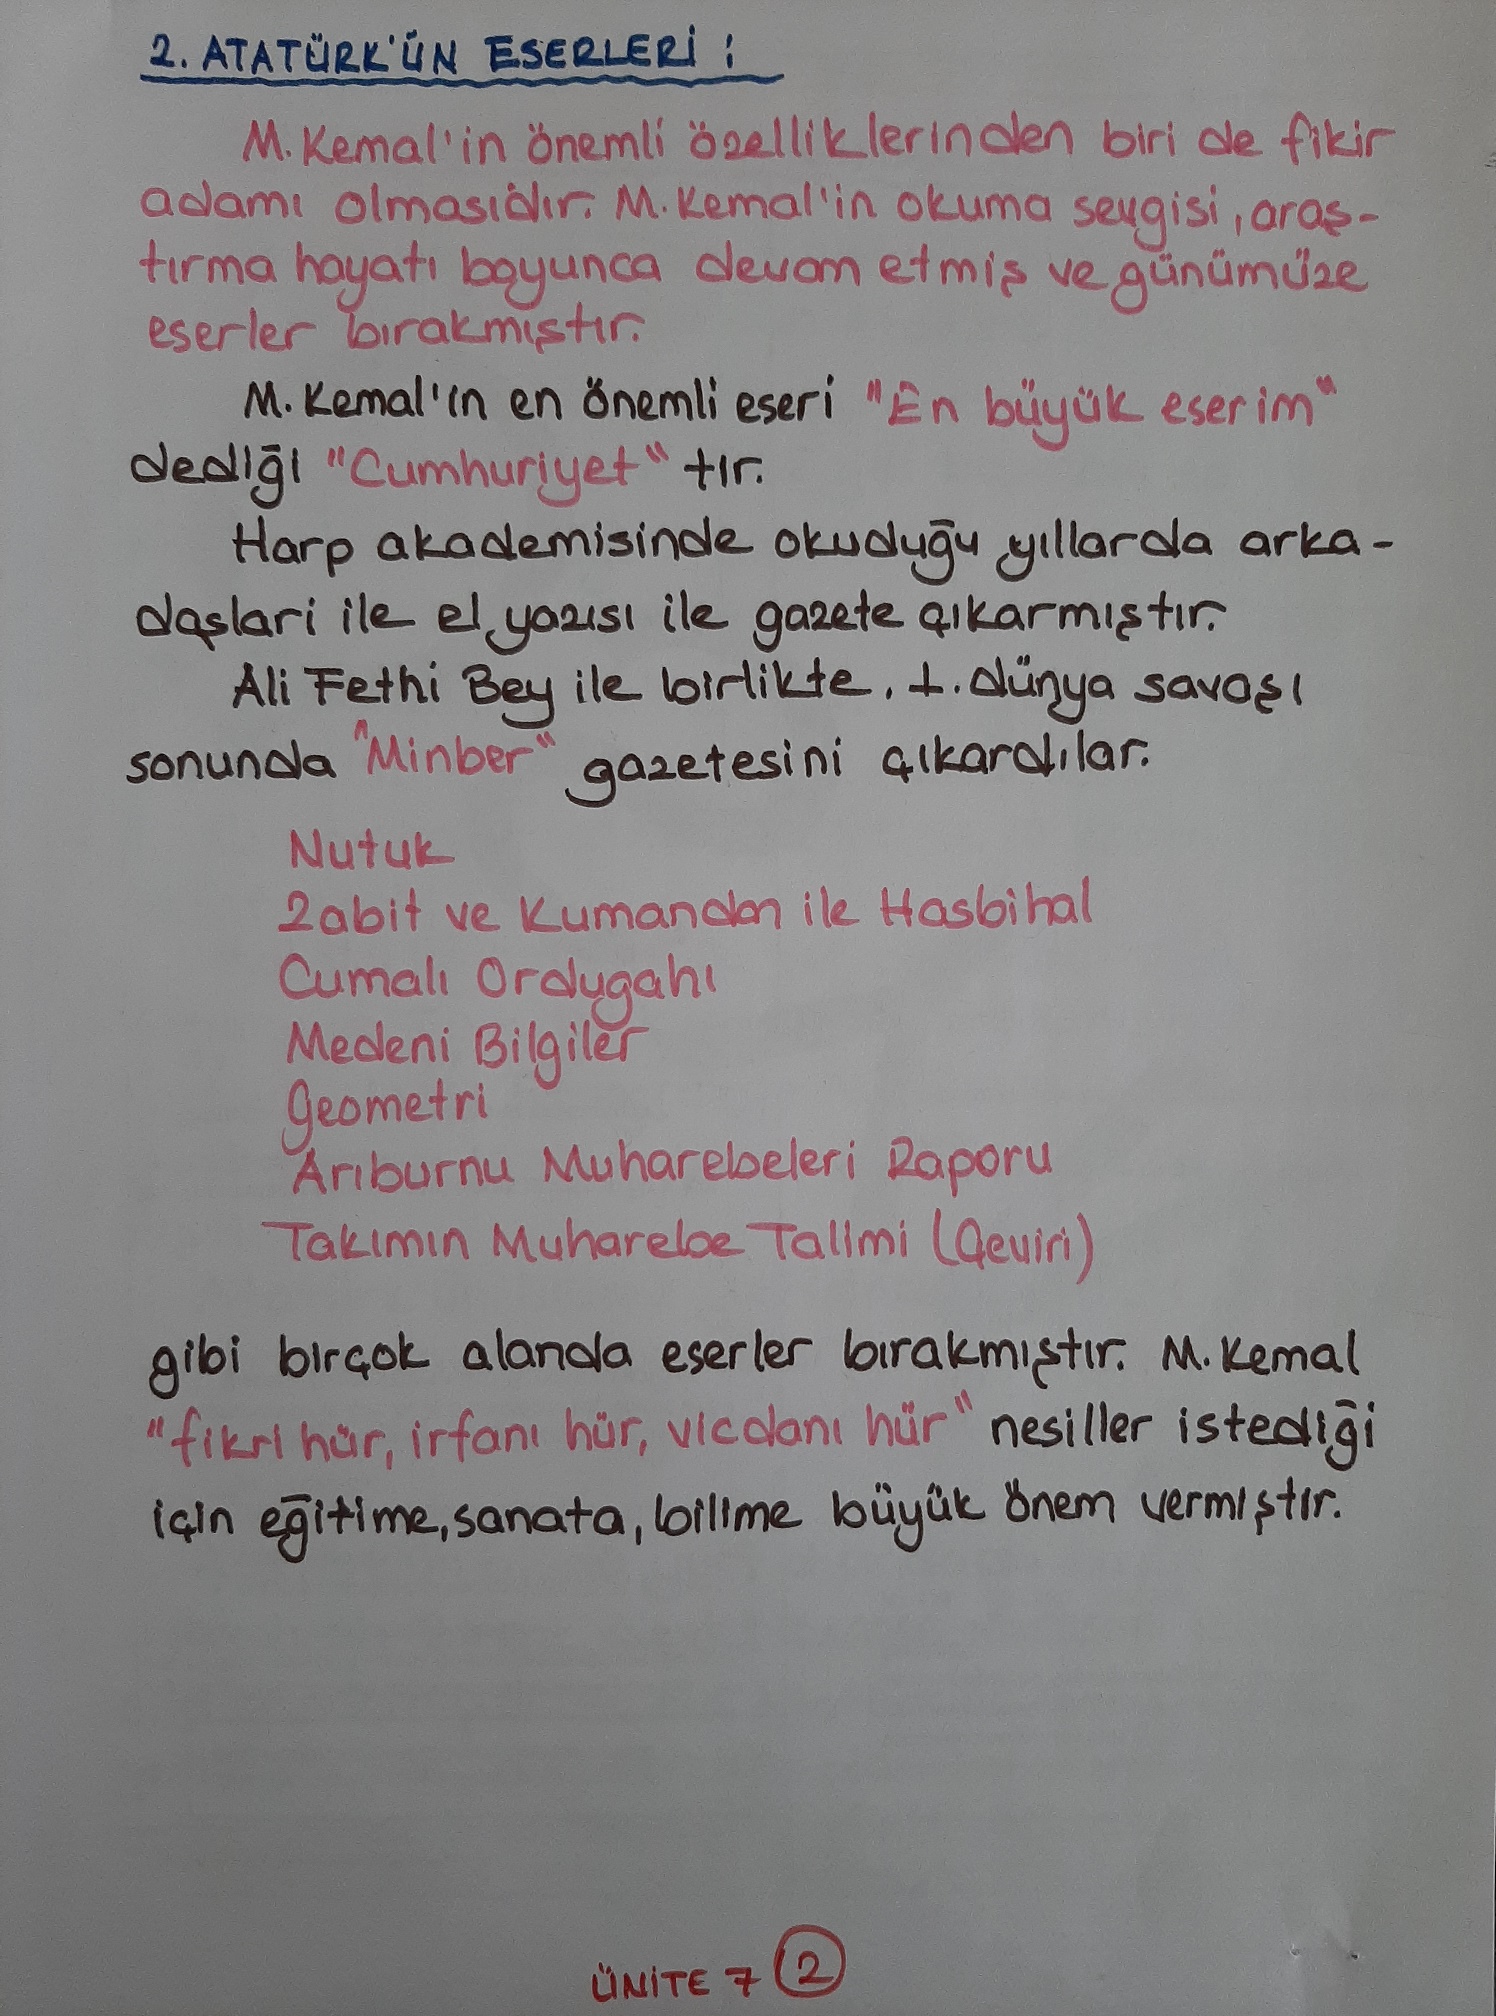 2. ATATÜRK'ÜN ESERLERİ :
M. Kemal'in önemli özelliklerinden biri de fikir
adamı olmasıdır. M. Kemal'in okuma sevgisi, araş-
tırma hayatı boyunca devam etmiş ve günümüze
eserler bırakmıştır.
M. Kemal'in en önemli eseri "En büyük eserim"
dediği "Cumhuriyet" tır.
Harp akademisinde okuduğu yıllarda arka-
daşlari ile el yazısı ile gazete çıkarmıştır.
Ali Fethi Bey ile birlikte, I. dünya savaşı
sonunda "Minber" gazetesini çıkardılar.
Nutuk
Zabit ve Kumandan ile Hasbihal
Cumalı Ordugahı
Medeni Bilgiler
Geometri
Arıburnu Muharebeleri Raporu
Takımın Muharebe Talimi (Çeviri)
gibi birçok alanda eserler bırakmıştır. M. Kemal
"fikri hür, irfanı hür, vicdanı hür" nesiller istediği
için eğitime, sanata, bilime büyük önem vermiştir.
ÜNİTE 7 2